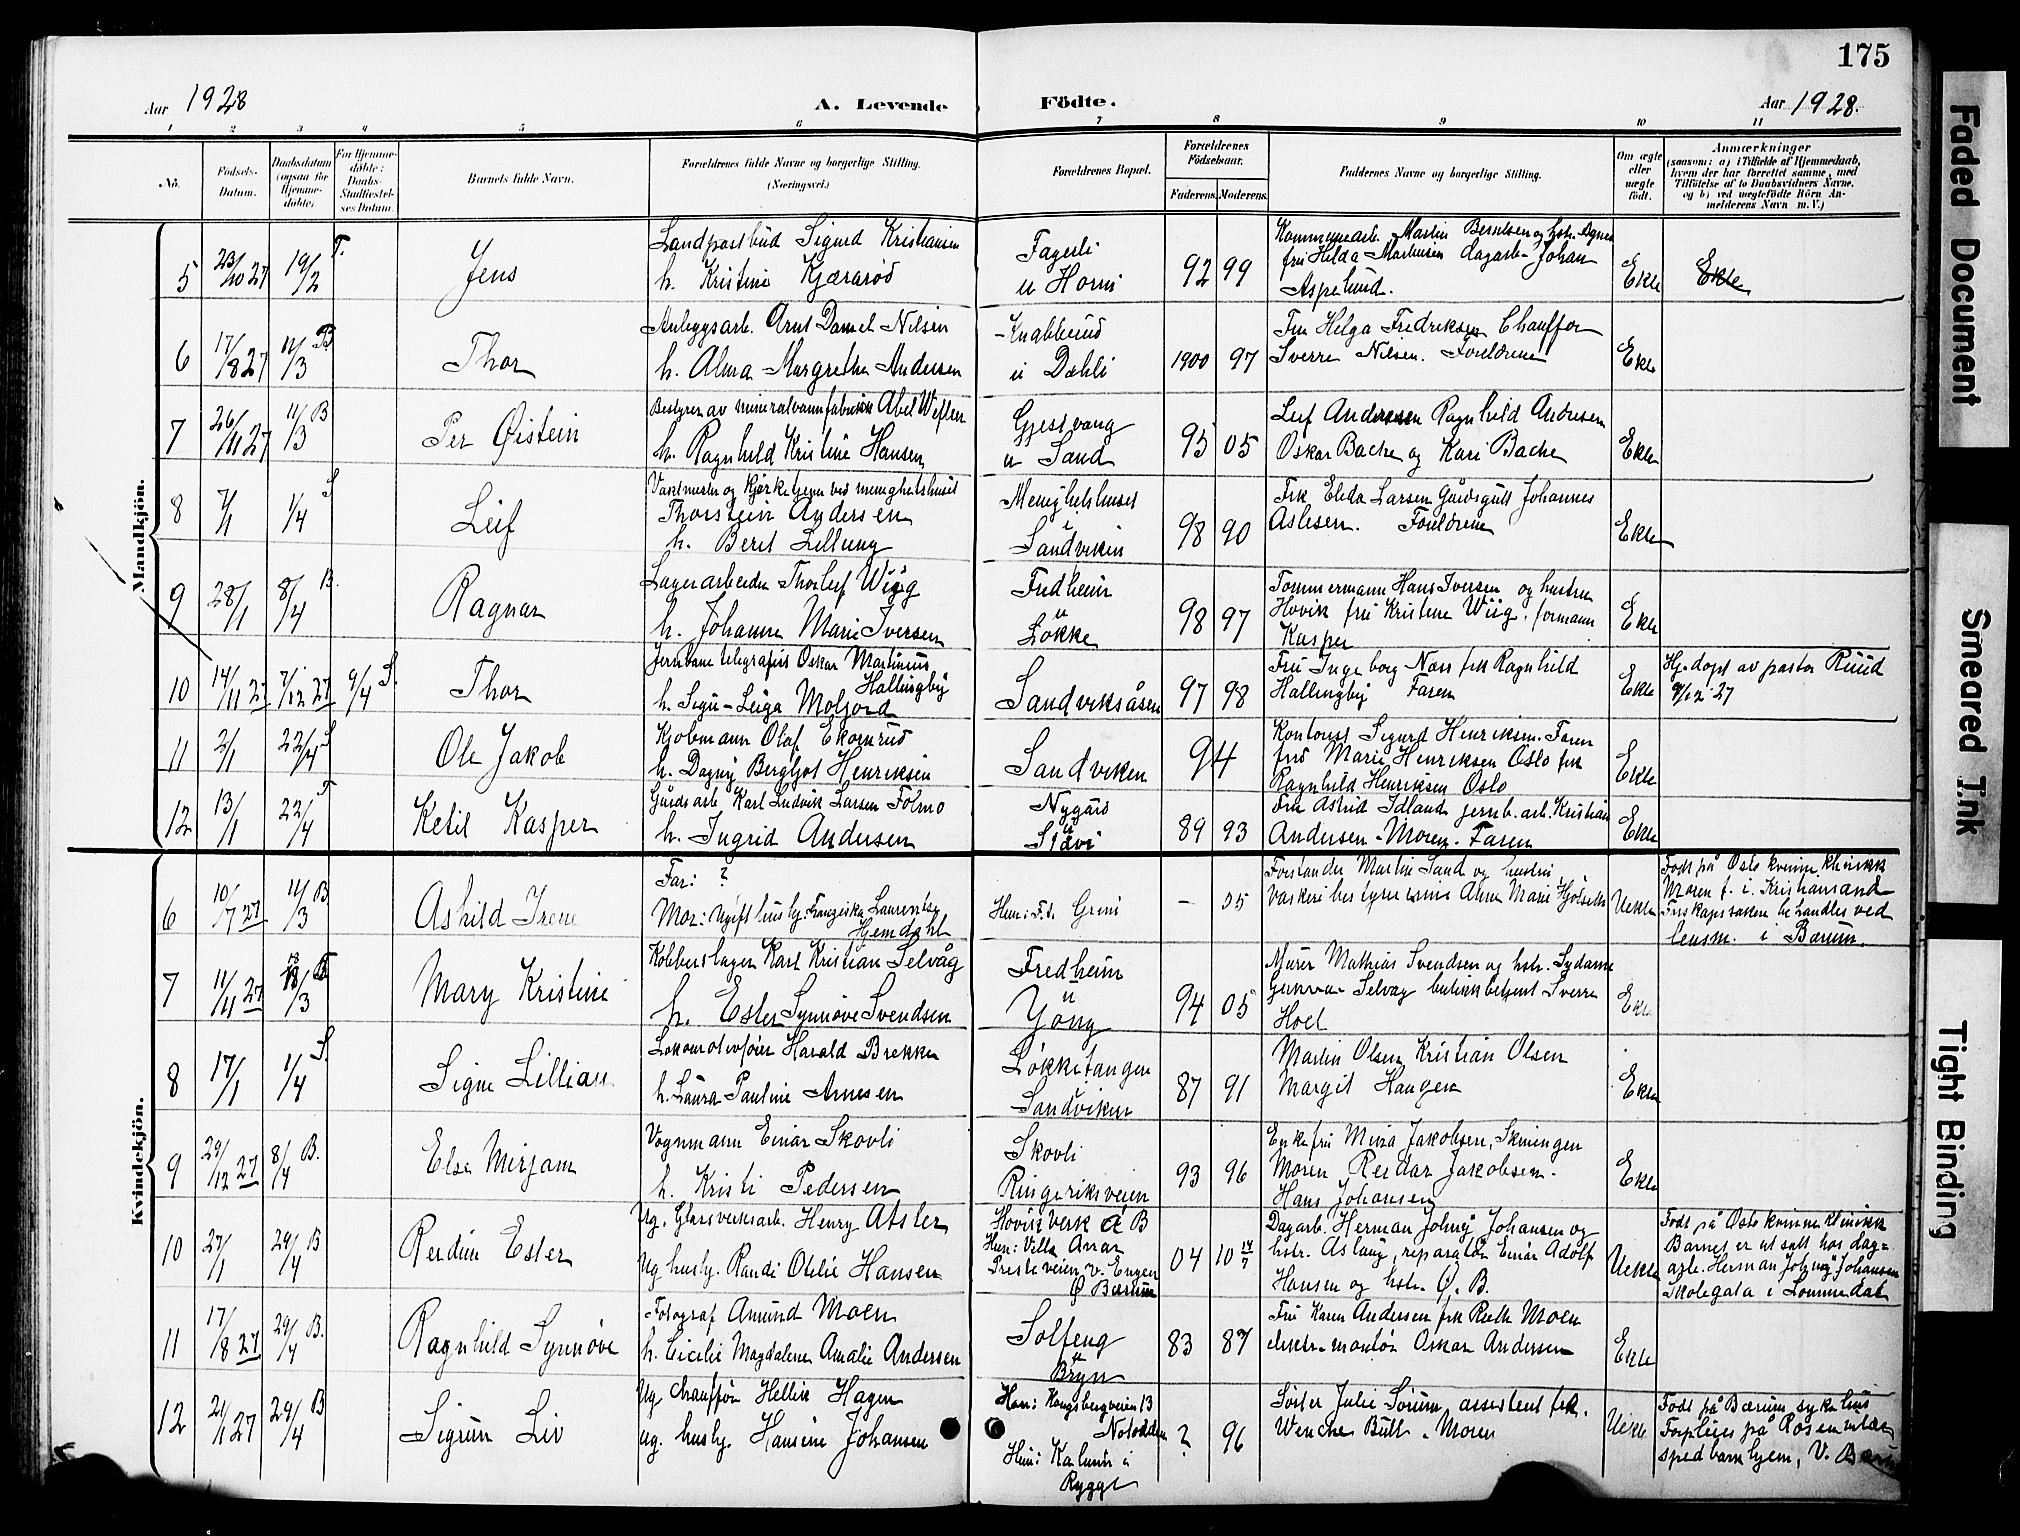 175
Aar 1928 A. Levende Födte. Aar 1928.
1 2 3 4 5 6 7 8 9 10 11
No. Födsels-Datum. Daabsdatum (ogsaa for Hjemmedöbte) For Hjemmedöbte: Daabs-Stadfæstelses Datum. Barnets fulde Navn. Forældrenes fulde Navne og borgerlige Stilling. (Næringsvei.) Forældrenes Bopæl. Forældrenes Födselsaar. Faderens. Moderens. Faddernes Navne og borgerlige Stilling. Om ægte eller uægte født. Anmærkninger (saasom: a) i Tilfælde af Hjemmedaab, hvem der har forrettet samme, med Tilföielse af to Daabsvidners Navne, og b) ved uægtefödte Börn Anmelderens Navn m. V.)
Mandkjön.
5 23/10 27 19/2 T. Jens Landpostbud Sigurd Kristiansen
h. Kristine Kjærarød
Fagerli
Horni
92 99
Kommunearb. Martin Berntsen og hstr. Agnes
fru Hilda Martinsen dagarb. Johan
Aspelund.
Ekte Ekte
6 17/8 27 11/3 B Thor Anleggsarb. Arnt Daniel Nilsen
h. Alma Margrethe Andersen
Knabberud
i Dæhli
1900 97
Fru Helga Fredriksen Chauffør
Sverre Nilsen. Foreldrene
Ekte
7 26/11 27 11/3 B Per Øistein Bestyrer av mineralvannfabrikk Abel
h. Ragnhild Kristine Hansen
Gjestvang
u Sand
95 05
Leif Andersen Ragnhild Andresen
Oskar Bache og Kari Bache
Ekte
8 7/1 1/4 S Leif Vaktmester og kjerketjener ved menighetshuset
Thorstein Andersen
h. Berit Lillung
Menighetshuset
i
Sandviken
98 90
Frk Elida Larsen Gårdsgutt Johannes
Aslesen. Foreldrene
Ekte
9 28/1 8/4 B. Ragnar Lagerarbeider Thorleif Wiig
h. Johanne Marie Iversen
Fredheim
u
Løkke
98 97
Tømmermann Hans Iversen og hustru
Høvik fru Kristine Wiig. formann
Kasper
Ekte
10 14/11 27 7/12 27 9/4 S. Thor Jernbanetelegrafist Oskar Martinius
Hallingby
h. Signe Leiga Moljord
Sandviksåsen
97 98
Fru Ingeborg Næss frk Ragnhild
Hallingby Faren
Ekte
Hj.døpt av pastor Ruud
9/12 27
11 2/1 22/4 S Ole Jakob Kjøbmann Olaf Ekornrud
h. Dagny Bergljot Henriksen
Sandviken
94
Kontorist Sigurd Henriksen. Faren
frøi Marie Henriksen Oslo frk
Ragnhild Henriksen Oslo
Ekte
12 13/1 22/4 T Ketil Kasper Gårdsarb Karl Ludvik Larsen Tolmo
h. Ingrid Andersen
Nygård
u
Stavi
89 93
Fru Astrid Idland jernb. arb. Kristian
Andersen - Moren - Faren
Ekte
Kvindekjön.
6 10/7 27 11/3 B Ashild Irene Far: ?
Mor: Ugift husby. Franziska Laurentze
Hjemdahl
Hun: F.t. Grini
— 05
Forstander Martin Sand og hustru
vaskeribestyrerinne Anne Marie
Uekte
Født på Oslo kvinneklinikk
Moren f. i. Kristiansand
Farskapssaken behandles ved
lensm. i Bærum.
7 11/11 27 18/3 B Mary Kristine Kobberslager Karl Kristian Selvåg
h. Ester Synnøve Svendsen
Fredheim
u
Yong
94 05
Murer Mathias Svendsen og hstr. Sydanne
Selvåg butikkbetjent Sverre
Hoel
Ekte
8 17/1 1/4 S. Signe Lillian Lokomotivfører Harald Brekke
h. Laura Pauline Arnesen
Løkketangen
Sandviken
87 91
Martin Olsen Kristian Olsen
Margit Haugen
Ekte
9 29/12 27 8/4 B. Else Mirjam Vognmann Einar Skovli
h. Kristi Pedersen
Skovli
Ringeriksveien
93 96
Enkefru Mina Jakobsen, Skuingen
Moren Reidar Jakobsen.
Hans Johansen
Ekte
10 27/1 29/4 B Reidun Ester Ug. Glassverksarb. Henry Atsler
Ug husby. Randi Otilie Hansen
Høvik verk A B
Hun: Villa Anar
Presteveien v. Engen
Ø Bærum
04 10 17/7
Dagarb. Herman Johny Johansen og
hstr. Aslaug, reparatør Einar Adolf
Hansen og hstr. Ø. B.
Uekte
Født på Oslo kvinneklinikk
Barnet er ut satt hos dag-
arb. Herman Johny Johansen
Skolegata i Lommedal
11 17/8 27 29/4 B. Ragnhild Synnøve Fotograf Amund Moen
h. Cicilie Magdalene Amalie Andersen
Solfeng
u
Bryn
83 87
Fru Karen Andersen frk Ruth Moen
elektr. montør Oskar Andersen
Ekte
12 21/1 27 29/4 B Sigrun Liv Ug Chauffør Hellik Hagen
ug. husby. Hansine Johansen
Han: Kongsbergveien 13
Notodden
Hun: Karlund i
Rygge
? 96
Søster Julie Sørum assistent frk.
Wenche Bull. Moren
Uekte
Født på Bærum sykehus
Forpleies på Rosenvilde
spedbarnhjem, V. Bærum
Faded Document
Smeared Ink
Tight Binding